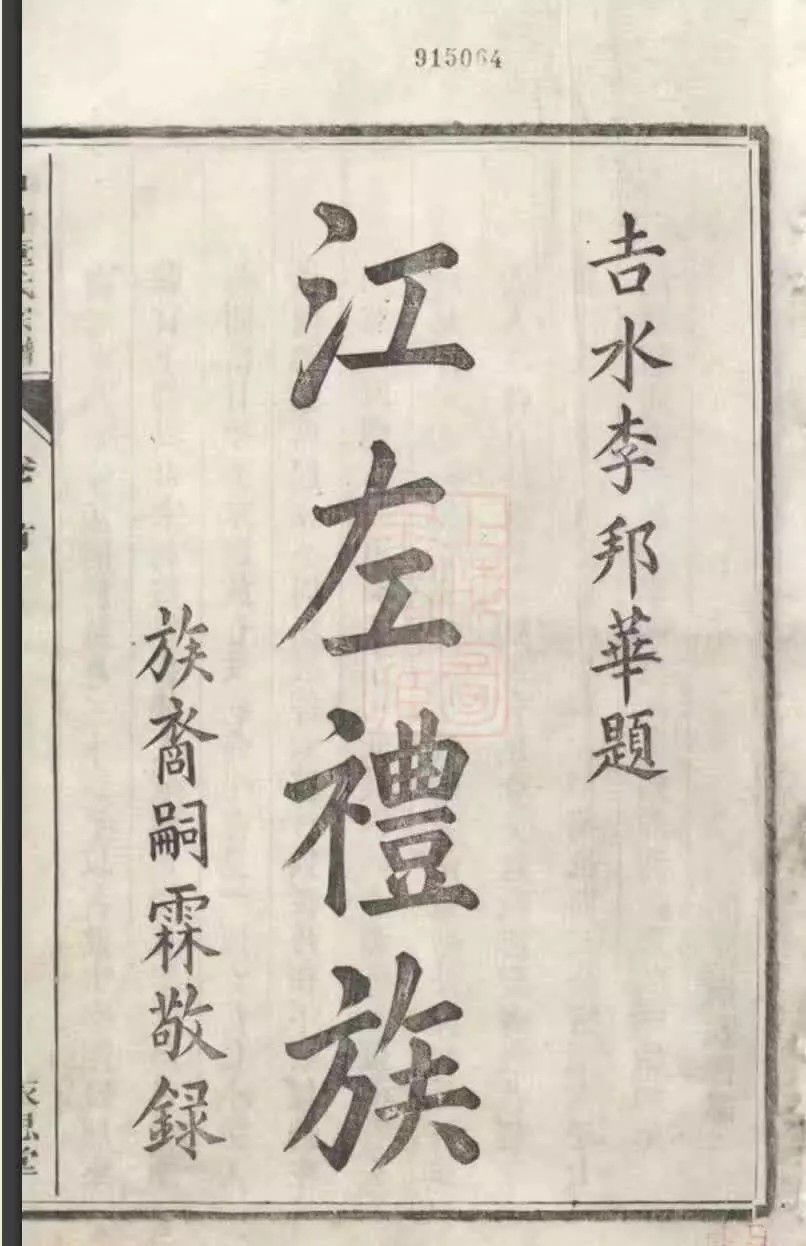 915064
吉水李邦華題
江左禮族
族裔嗣霖敬録